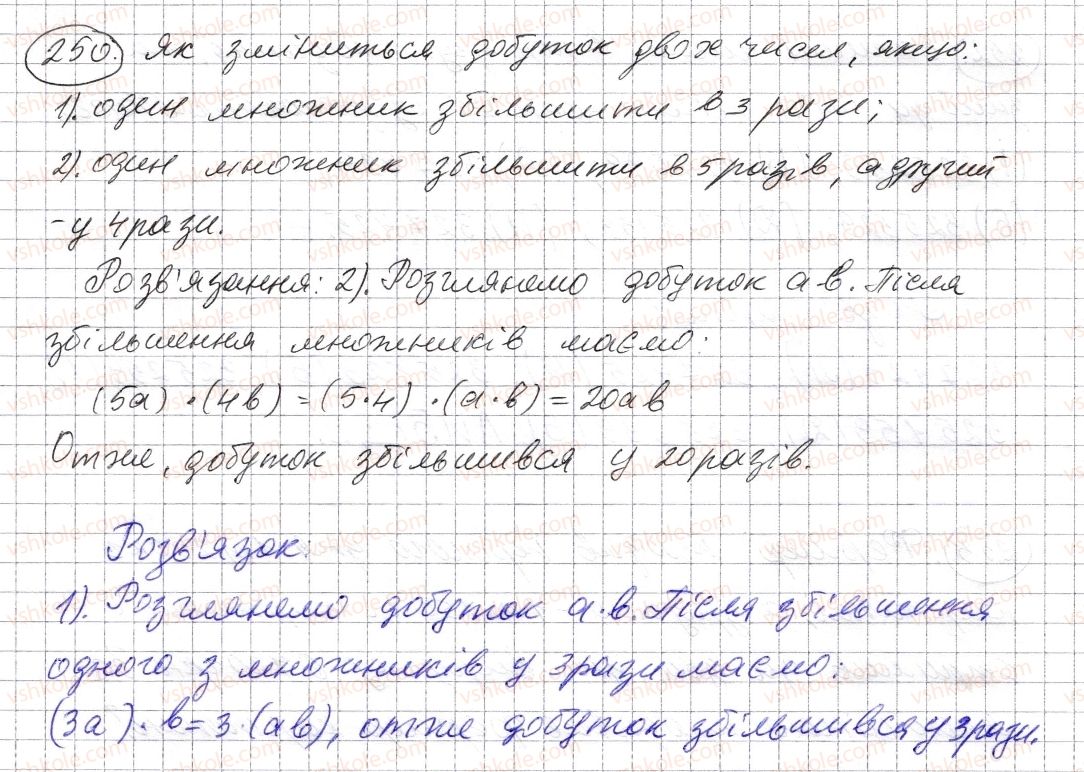 250. Як зміниться добуток двох чисел, якщо:
1). один множник збільшити в 3 рази;
2). один множник збільшити в 5 разів, а другий
- у 4 рази.
Розв'язання: 2). Розглянемо добуток а·в. Після
збільшення множників маємо:
(5а)·(4в) = (5·4)·(а·в) = 20ав
Отже, добуток збільшився у 20 разів.
Розв'язок:
1). Розглянемо добуток а·в. Після збільшення
одного з множників у 3 рази маємо:
(3а)·в = 3·(ав), отже добуток збільшився у 3 рази.